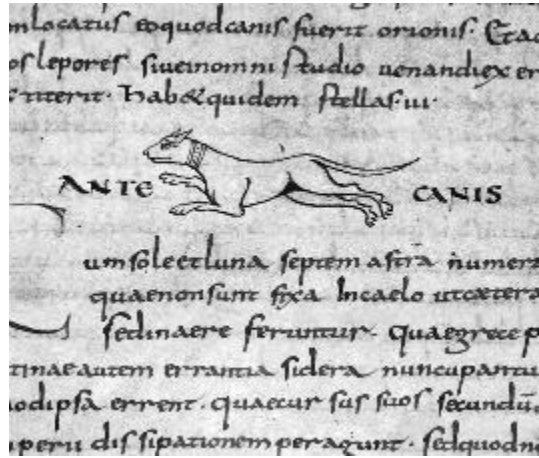 locatus eoquodcanis fuerit orionis. Et
lepores siveinomni studio venandi
titerit. Hab&quidem stellas. iii.
ANTE CANIS
umsole&luna septem astra numer
quaenonsunt fixa Incaelo utcaetera
sedinaere feruntur. quaegrece
autem errantia sidera nuncupantu
odipsa errent. quaecur sus suos secundū
dissipationem peragunt. sedquod